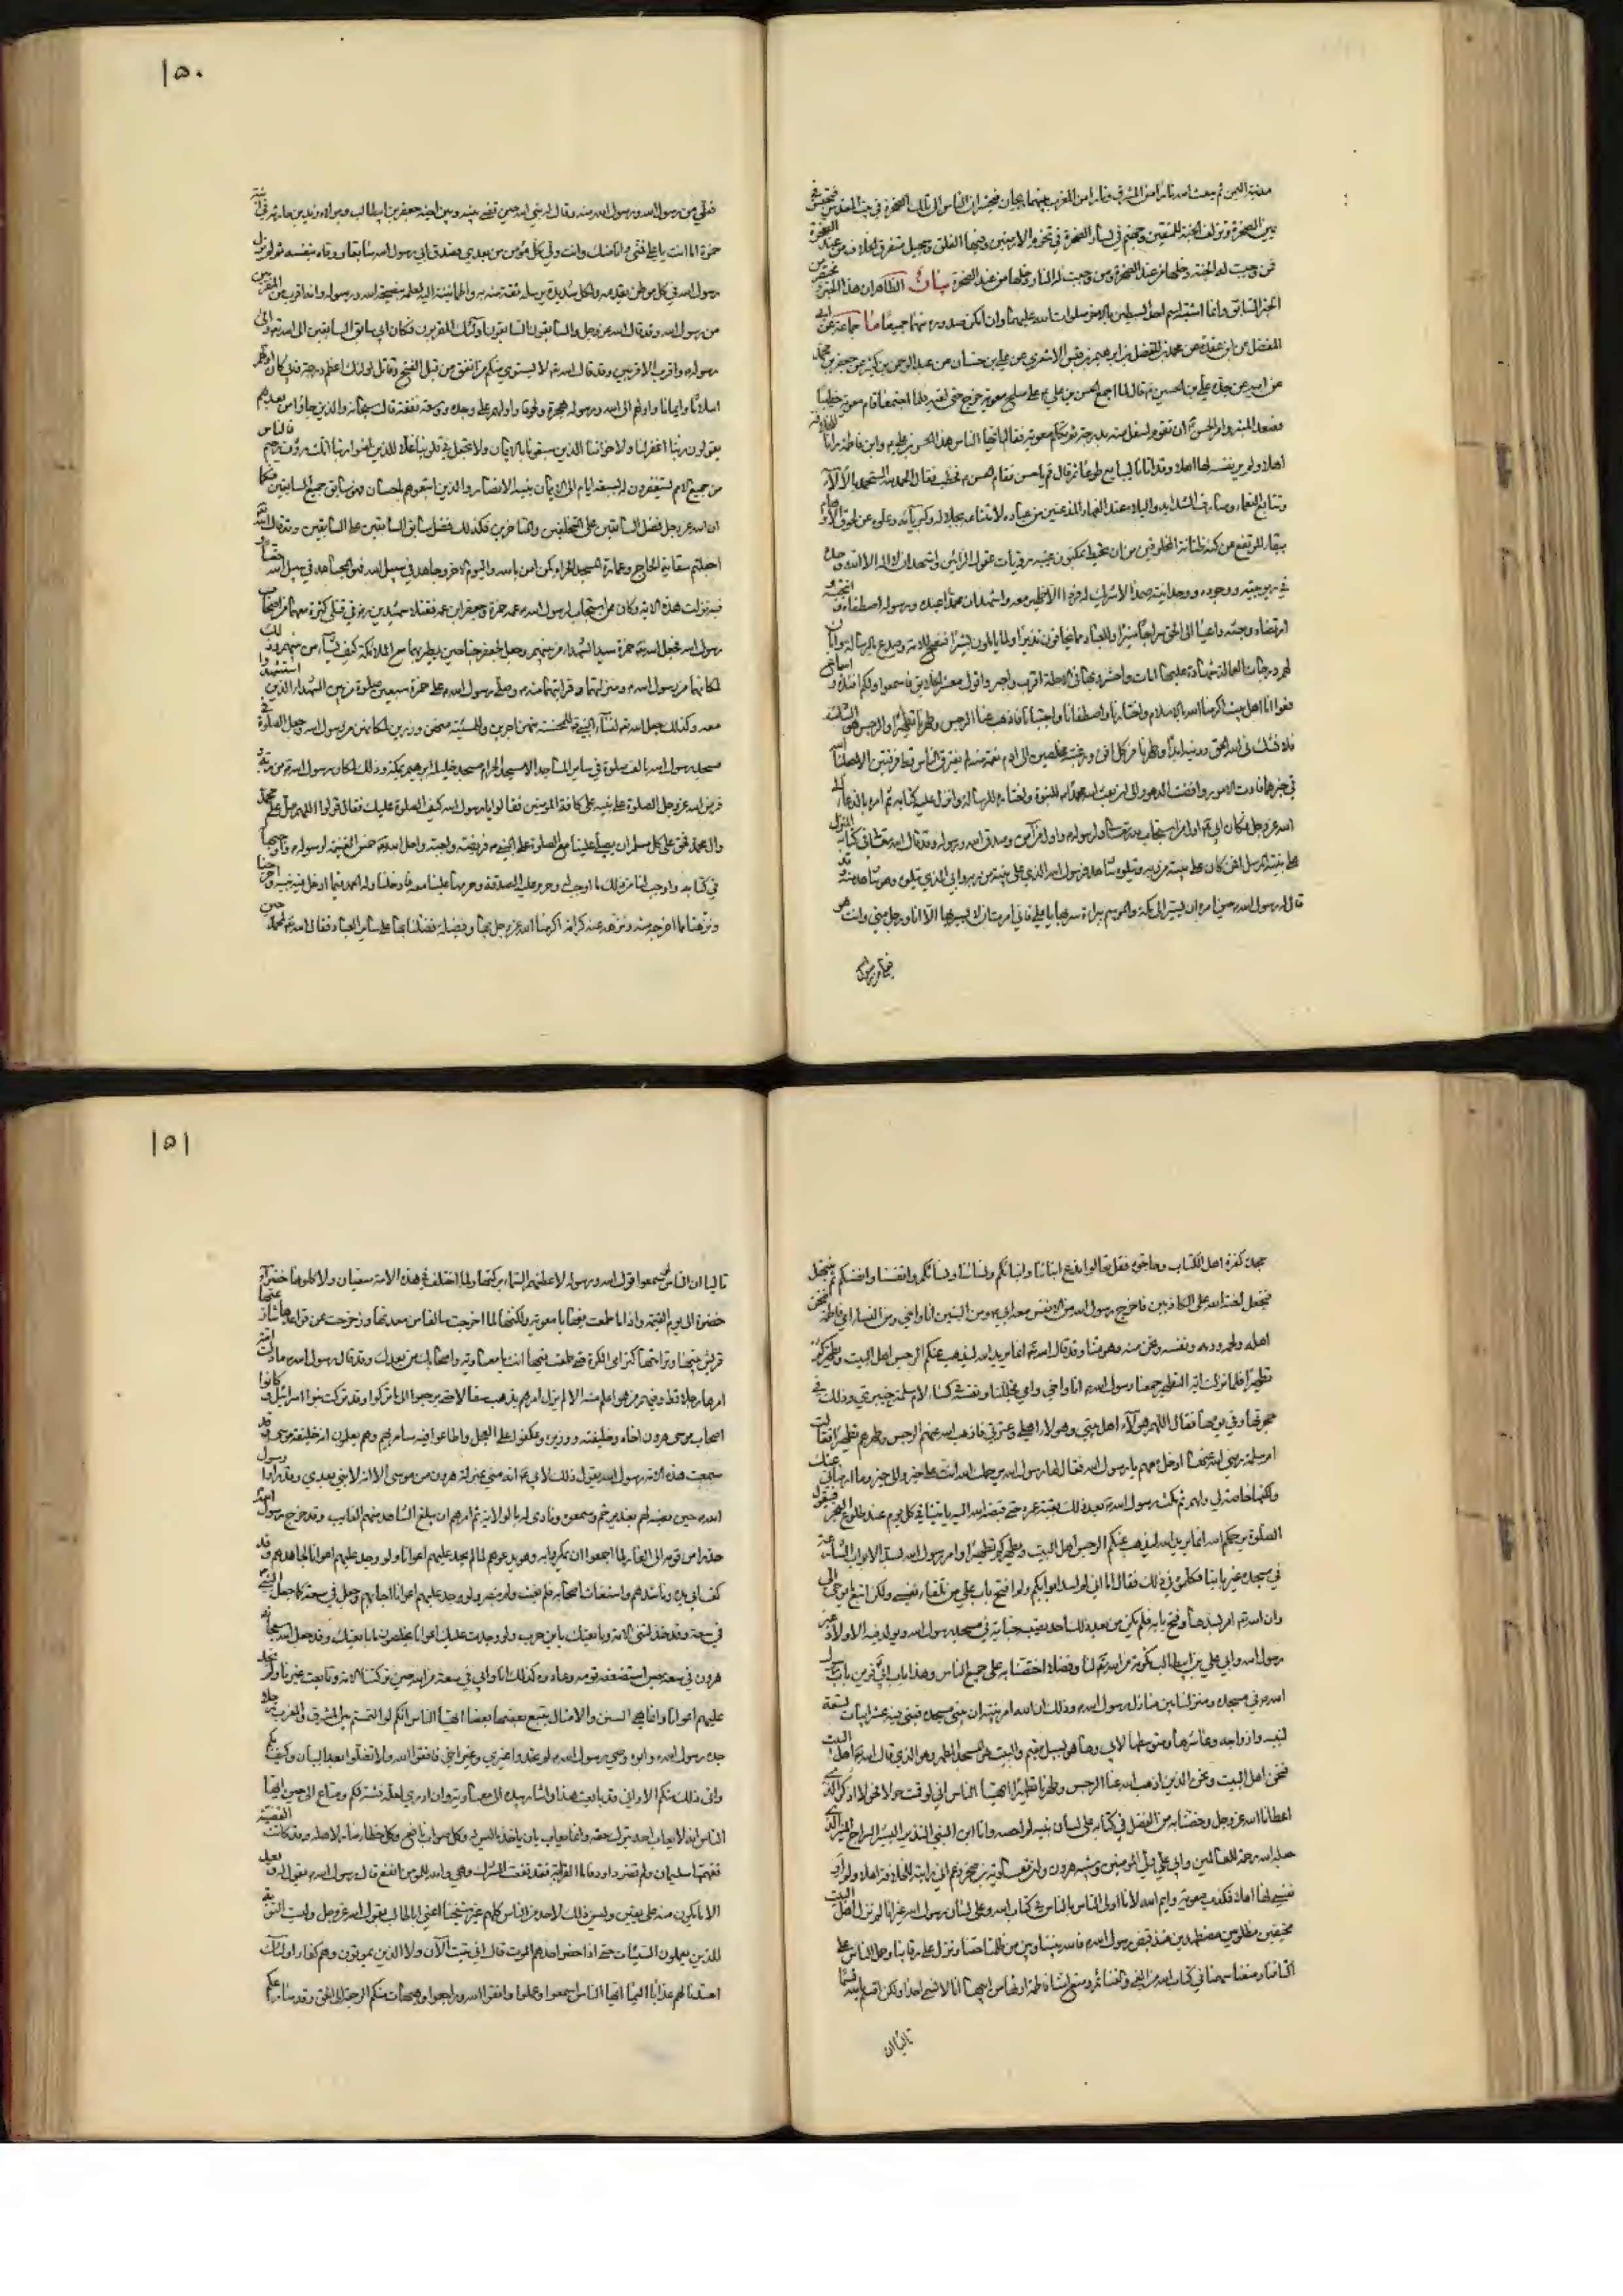 مدينة اليمن ثم يبعث الله نارا من المشرق ونارا من المغرب بينهما ريحان فيحشران الناس الى تلك الصخرة في بيت المقدس فتحبس في
يمين الصخرة وتزلف الجنة للمتقين وجهنم في يسار الصخرة في تخوم الارضين وفيها الفلق وسجيل متفرق الخلايق من عند الصخرة
فمن وجبت له الجنة دخلها من عند الصخرة ومن وجبت له النار دخلها من عند الصخرة بيان الظاهر ان هذا الخبر مختصر من
الخبر السابق وانما اشتبه اسم احد السبطين بالاخر صلوات الله عليهما وان امكن صدوره منهما جميعا ما جماعة عن ابي
المفضل عن ابن عقدة عن محمد بن المفضل بن ابرهيم بن قيس الاشعري عن علي بن حسان عن عبد الرحمن بن كثير عن جعفر بن محمد
عن ابيه عن جده علي بن الحسين ع قال لما اجمع الحسن بن علي ع على صلح معوية خرج حتى لقيه فلما اجتمعا قام معوية خطيبا
فصعد المنبر وامر الحسن ع ان يقوم اسفل منه بدرجة ثم تكلم معوية فقال ايها الناس هذا الحسن بن علي ع وابن فاطمة رانا للخلافة
اهلا ولم ير نفسه لها اهلا وقد اتانا ليبايع طوعا ثم قال قم يا حسن فقام الحسن ع فخطب فقال الحمد لله المستحمد بالآلاء
وتتابع النعماء وصارف الشدايد والبلاء عند الفهماء وغير الفهماء المذعنين من عباده لامتناعه بجلاله وكبريائه وعلوه عن لحوق الاوهام
ببقائه المرتفع عن كنه ظنانة المخلوقين من ان تحيط بمكنون غيبه رويات عقول الرائين واشهد ان لا اله الا الله وحده
في ربوبيته ووجوده ووحدانيته صمدا لا شريك له فردا لا ظهير معه واشهد ان محمدا عبده ورسوله اصطفاه وانتجبه و
ارتضاه وبعثه داعيا الى الحق سراجا منيرا وللعباد مما يخافون نذيرا ولما ياملون بشيرا فنصح للامة وصدع بالرسالة وابان
لهم درجات العمالة شهادة عليها امات واحشر وبها في الاجلة اقرب واحبر واقول معشر الخلايق فاسمعوا ولكم افئدة واسماع
فعوا انا اهل بيت اكرمنا الله بالاسلام واختارنا واصطفانا واجتبانا فاذهب عنا الرجس وطهرنا تطهيرا والرجس هو الشك
فلا نشك في الله الحق ودينه ابدا وطهرنا من كل افن وغية مخلصين الى ادم نعمة منه لم يفترق الناس قط فرقتين الا جعلنا الله
في خيرهما فادت الامور وافضت الدهور الى ان بعث الله محمدا ص للنبوة واختاره للرسالة وانزل عليه كتابه ثم امره بالدعاء الى
الله عز وجل فكان ابي ع اول من استجاب لله تعالى ولرسوله ص واول من آمن وصدق الله ورسوله وقد قال الله تعالى في كتابه المنزل
على نبيه المرسل افمن كان على بينة من ربه ويتلوه شاهد منه فرسول الله الذي على بينة من ربه وابي الذي يتلوه وهو شاهد منه وقد
قال له رسول الله ص حين امره ان يسير الى مكة والموسم ببراءة سر بها يا علي فاني امرت ان لا يسير بها الا انا او رجل مني وانت هو
فعلي من رسول
۱۵۰
فعلي من رسول الله ورسول الله منه وقال له نبي الله حين قضى بينه وبين اخيه جعفر بن ابيطالب ومولاه زيد بن حارثة في ابنة
حمزة اما انت يا علي فمني وانا منك وانت ولي كل مؤمن من بعدي فصدق ابي رسول الله سابقا ووقاه بنفسه ثم لم يزل
رسول الله في كل موطن يقدمه ولكل شديدة يرسله ثقة منه به وطمانينة اليه لعلمه بنصيحته لله ورسوله وانه اقرب المقربين
من رسول الله وقد قال الله عز وجل والسابقون السابقون اولئك المقربون فكان ابي سابق السابقين الى الله تعالى والى
رسوله ص واقرب الاقربين وقد قال الله تعالى لا يستوي منكم من انفق من قبل الفتح وقاتل اولئك اعظم درجة فابي كان اولهم
اسلاما وايمانا واولهم الى الله ورسوله هجرة ولحوقا واولهم على وجده ووسعه نفقة قال سبحانه والذين جاؤا من بعدهم
يقولون ربنا اغفر لنا ولاخواننا الذين سبقونا بالايمان ولا تجعل في قلوبنا غلا للذين امنوا ربنا انك رؤف رحيم فالناس
من جميع الامم يستغفرون له بسبقه اياهم الى الايمان بنبيه والانصار والذين اتبعوهم باحسان فهو سابق جميع السابقين فكما
ان الله عز وجل فضل السابقين على المتخلفين والمتاخرين فكذلك فضل سابق السابقين على السابقين وقد قال الله تعالى
اجعلتم سقاية الحاج وعمارة المسجد الحرام كمن امن بالله واليوم الاخر وجاهد في سبيل الله فهو المجاهد في سبيل الله حقا و
فيه نزلت هذه الاية وكان ممن استجاب لرسول الله ص عمه حمزة وجعفر ابن عمه فقتلا شهيدين رض في قتلى كثيرة معهما من اصحاب
رسول الله فجعل الله تعالى حمزة سيد الشهداء من بينهم وجعل لجعفر جناحين يطير بهما مع الملائكة كيف يشاء من بينهم وذلك
لمكانهما من رسول الله ص ومنزلتهما وقرابتهما منه ص وصلى رسول الله ص على حمزة سبعين صلوة من بين الشهداء الذين استشهدوا
معه وكذلك جعل الله تعالى لنساء النبي ص للمحسنة منهن اجرين وللمسيئة منهن وزرين لمكانهن من رسول الله وجعل الصلوة في
مسجد رسول الله بالف صلوة في ساير المساجد الا مسجد الحرام مسجد خليله ابرهيم بمكة وذلك لمكان رسول الله ص من ربه
فرض الله عز وجل الصلوة على نبيه على كافة المؤمنين فقالوا يا رسول الله كيف الصلوة عليك فقال قولوا اللهم صل على محمد
وال محمد فحق على كل مسلم ان يصلي علينا مع الصلوة على النبي ص فريضة واجبة واحل الله تعالى خمس الغنيمة لرسوله ص واوجبها
في كتابه واوجب لنا من ذلك ما اوجب له وحرم عليه الصدقة وحرمها علينا معه فادخلنا وله الحمد فيما ادخل فيه نبيه واخرجنا
ونزهنا مما اخرجه منه ونزهه عنه كرامة اكرمنا الله عز وجل بها وفضيلة فضلنا بها على ساير العباد فقال الله تعالى لمحمد ص حين
جحده كفرة اهل الكتاب وحاجوه فقل تعالوا ندع ابنائنا وابنائكم ونسائنا ونسائكم وانفسنا وانفسكم ثم نبتهل
فنجعل لعنة الله على الكاذبين فاخرج رسول الله من الانفس معه ابي ع ومن البنين انا واخي ومن النساء امي فاطمة فنحن
اهله ولحمه ودمه ونفسه ونحن منه وهو منا وقد قال الله تعالى انما يريد الله ليذهب عنكم الرجس اهل البيت ويطهركم
تطهيرا فلما نزلت اية التطهير جمعنا رسول الله ص انا واخي وامي وابي فجللنا ونفسه في كساء لام سلمة خيبري وذلك في
حجرتها وفي يومها فقال اللهم هؤلاء اهل بيتي وهؤلاء اهلي وعترتي فاذهب عنهم الرجس وطهرهم تطهيرا فقالت
ام سلمة رضي الله عنها ادخل معهم يا رسول الله فقال لها رسول الله يرحمك الله انت على خير والى خير وما ارضاني عنك
ولكنها خاصة لي ولهم ثم مكث رسول الله ص بعد ذلك بقية عمره حتى قبضه الله اليه ياتينا في كل يوم عند طلوع الفجر فيقول
الصلوة يرحمكم الله انما يريد الله ليذهب عنكم الرجس اهل البيت ويطهركم تطهيرا وامر رسول الله بسد الابواب الشارعة
في مسجده غير بابنا فكلموه في ذلك فقال اما اني لم اسد ابوابكم ولم افتح باب علي من تلقاء نفسي ولكن اتبع ما يوحى الي
وان الله تعالى امر بسدها وفتح بابه فلم يكن من بعد ذلك احد يصيبه جنابة في مسجد رسول الله ويولد فيه الاولاد غير
رسول الله وابي علي بن ابيطالب تكرمة من الله تعالى لنا وفضلا اختصنا به على جميع الناس وهذا باب ابي ع قرين باب رسول
الله ص في مسجده ومنزلنا بين منازل رسول الله ص وذلك ان الله امر نبيه ان يبني مسجده فبنى فيه عشرة ابيات تسعة
لنبيه وازواجه وعاشرها وهو متوسطها لابي وها هو لبسبيل مقيم والبيت هو المسجد المطهر وهو الذي قال الله تعالى اهل البيت
فنحن اهل البيت ونحن الذين اذهب الله عنا الرجس وطهرنا تطهيرا ايها الناس اني لو قمت حولا فحولا اذكر الذي
اعطانا الله عز وجل وخصنا به من الفضل في كتابه على لسان نبيه لم احصه وانا ابن النبي النذير البشير السراج المنير الذي
جعله الله رحمة للعالمين وابي علي ولي المؤمنين وشبيه هرون وان معوية بن صخر زعم اني رايته للخلافة اهلا ولم ار
نفسي لها اهلا فكذب معوية وايم الله لانا اولى الناس بالناس في كتاب الله وعلى لسان رسول الله غير انا لم نزل اهل البيت
مخيفين مظلومين مضطهدين منذ قبض رسول الله ص فالله بيننا وبين من ظلمنا حقنا ونزل على رقابنا وحمل الناس على
اكتافنا ومنعنا سهمنا في كتاب الله من الفيء والغنائم ومنع امنا فاطمة ارثها من ابيها انا لا نسمي احدا ولكن اقسم بالله قسما
تاليا ان
۱۵۱
تاليا ان الناس لو سمعوا قول الله ورسوله لاعطتهم السماء بركتها ولما اختلف في هذه الامة سيفان ولاكلوها خضراء
خضرة الى يوم القيمة واذا ما طمعت فيها يا معوية ولكنها لما اخرجت سالفا من معدنها وزحزحت عن قواعدها تنازعتها
قريش بينها وترامتها كترامي الكرة حتى طمعت فيها انت يا معاوية واصحابك من بعدك وقد قال رسول الله ص ما ولت امة
امرها رجلا قط وفيهم من هو اعلم منه الا لم يزل امرهم يذهب سفالا حتى يرجعوا الى ما تركوا وقد تركت بنوا اسرائيل وكانوا
اصحاب موسى هرون اخاه وخليفته ووزيره وعكفوا على العجل واطاعوا فيه سامريهم وهم يعلمون انه خليفة موسى وقد
سمعت هذه الامة رسول الله يقول ذلك لابي ع انه مني بمنزلة هرون من موسى الا انه لا نبي بعدي وقد راوا رسول
الله ص حين نصبه لهم بغدير خم وسمعوه ونادى له بالولاية ثم امرهم ان يبلغ الشاهد منهم الغايب وقد خرج رسول الله ص
حذرا من قومه الى الغار لما اجمعوا ان يمكروا به وهو يدعوهم لما لم يجد عليهم اعوانا ولو وجد عليهم اعوانا لجاهدهم وقد
كف ابي يده وناشدهم واستغاث اصحابه فلم يغث ولم ينصر ولو وجد عليهم اعوانا ما اجابهم وجعل في سعة كما جعل النبي
في سعة وقد خذلتني الامة وبايعتك يا ابن حرب ولو وجدت عليك اعوانا يخلصون ما بايعتك وقد جعل الله سبحانه
هرون في سعة حين استضعفه قومه وعادوه كذلك انا وابي في سعة من الله حين تركتنا الامة وتابعت غيرنا ولم نجد
عليهم اعوانا وانما هي السنن والامثال يتبع بعضها بعضا ايها الناس انكم لو التمستم بين المشرق والمغرب رجلا
جده رسول الله ص وابوه وصي رسول الله ص لم تجدوا غيري وغير اخي فاتقوا الله ولا تضلوا بعد البيان وكيف بكم
وانى ذلك منكم الا واني قد بايعت هذا واشار بيده الى معاوية وان ادري لعله فتنة لكم ومتاع الى حين ايها
الناس انه لا يعاب احد بترك حقه وانما يعاب ان ياخذ ما ليس له وكل صواب نافع وكل خطاء ضار لاهله وقد كانت القضية
ففهمها سليمان ولم تضر داود فاما القرابة فقد نفعت المشرك وهي والله للمؤمن انفع قال رسول الله ص
الا ما يكون منه على يقين وليس ذلك لاحد من الناس كلهم غير شيخنا اعني ابا طالب يقول الله عز وجل وليست التوبة
للذين يعملون السيئات حتى اذا حضر احدهم الموت قال اني تبت الآن ولا الذين يموتون وهم كفار اولئك
اعتدنا لهم عذابا اليما ايها الناس اسمعوا وعوا واتقوا الله وراجعوا وهيهات منكم الرجعة الى الحق وقد صارعكم